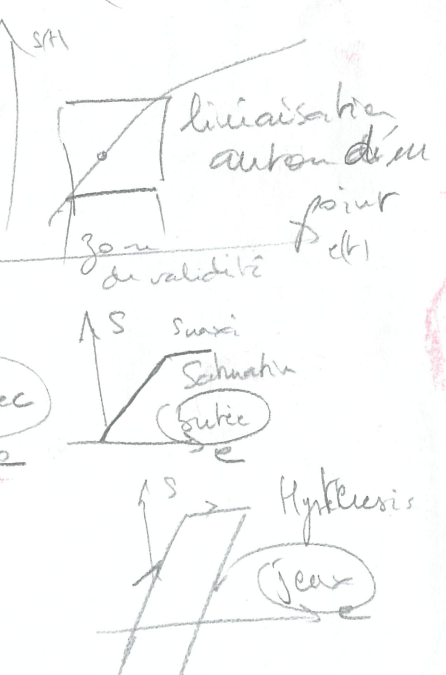 S(t)
linéaisation
autour d'un
point
e(t)
zone
de validité
S
Smaxi
Saturation
butée
ec
e
S
Hystérésis
jeux
e